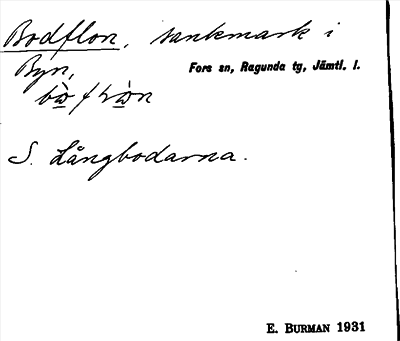 Bodflon, sankmark i
Byn,
Fors sn, Ragunda tg, Jämtl. l.
S. Långbodarna.
E. BURMAN 1931